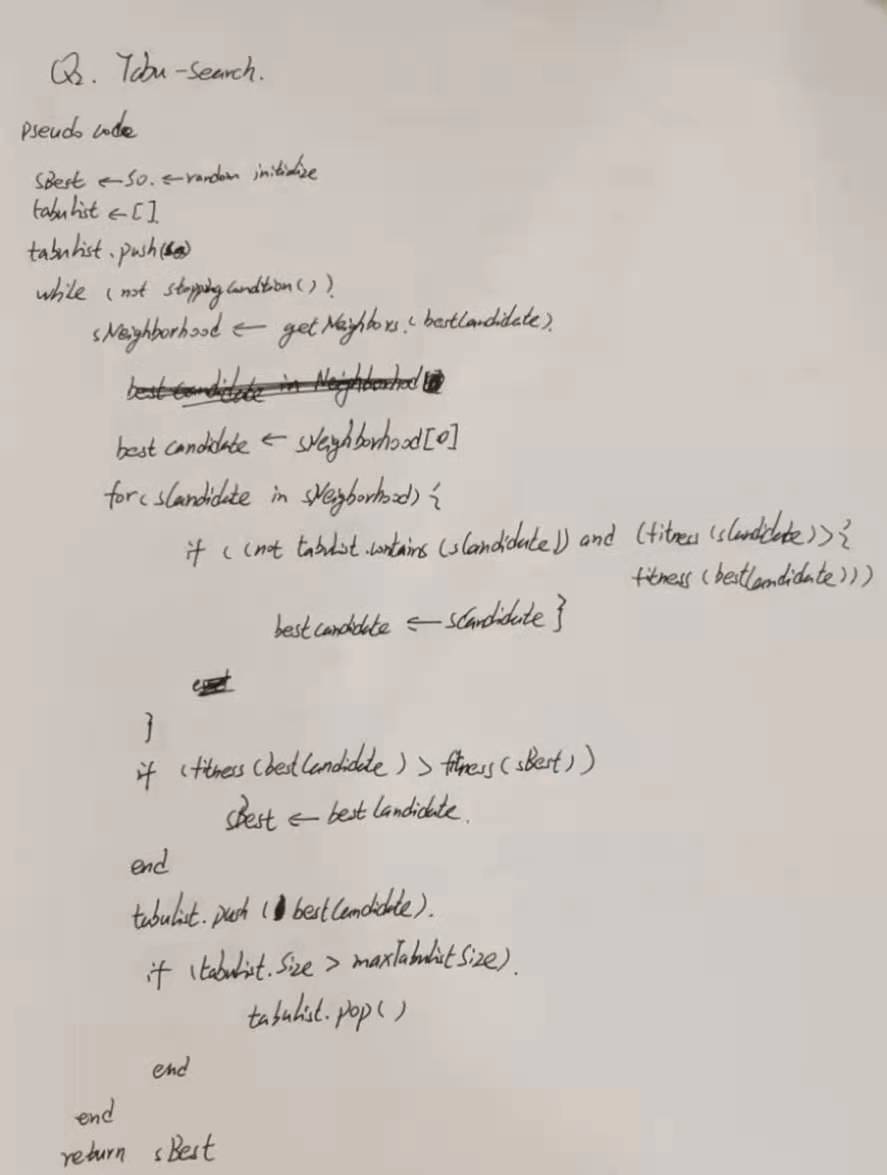 Q2. Tabu-search.
Pseudo code
sBest ← S0. ← random initialize
tabulist ← [].
tabulist.push(s0)
while (not stoppingCondition()).
sNeighborhood ← getNeighbors.(bestCandidate).
best candidate ← sNeighborhood[0]
for( sCandidate in sNeigborhood) {
if ( (not tabulist.contains (sCandidate)) and (fitness (sCandidate) > {
fitness (bestCandidate)))
best candidate ← sCandidate }
}
if (fitness (bestCandidate) > fitness (sBest))
sBest ← best Candidate.
end
tabulist.push (bestCandidate).
if (tabulist.Size > maxTabulist Size).
tabulist.pop()
end
end
return sBest